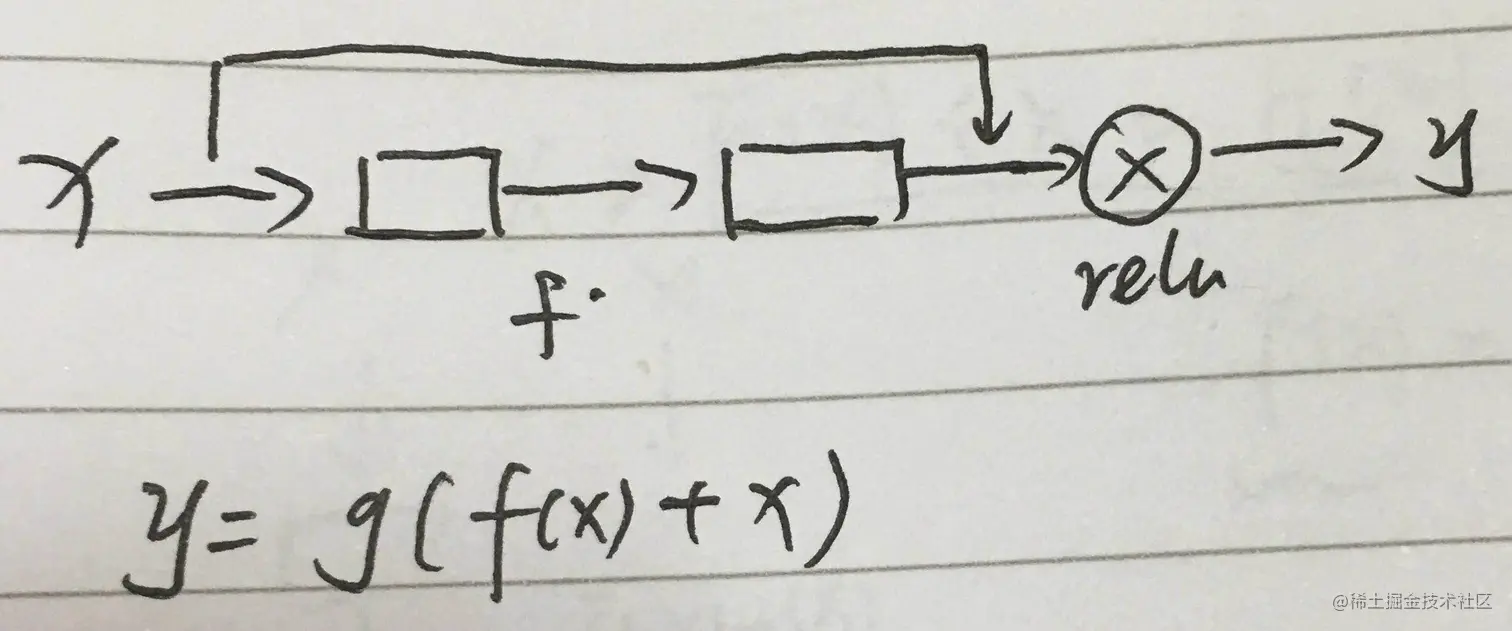 x y
f.
relu
y = g(f(x) + x)
@稀土掘金技术社区